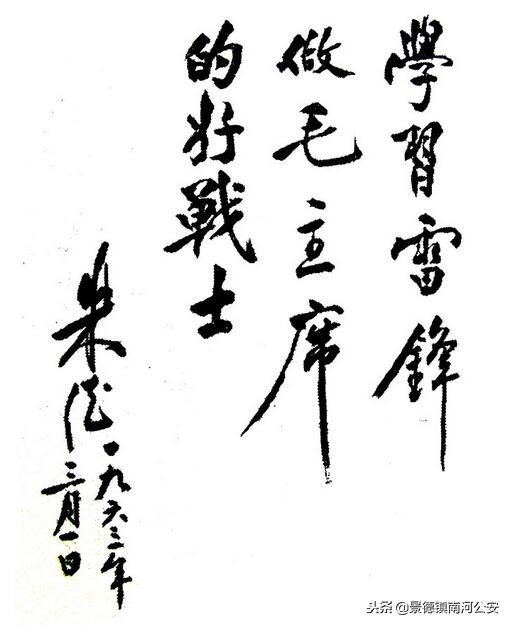 學習雷鋒
做毛主席
的好戰士
朱德
一九六三年
三月一日
头条@景德镇南河公安